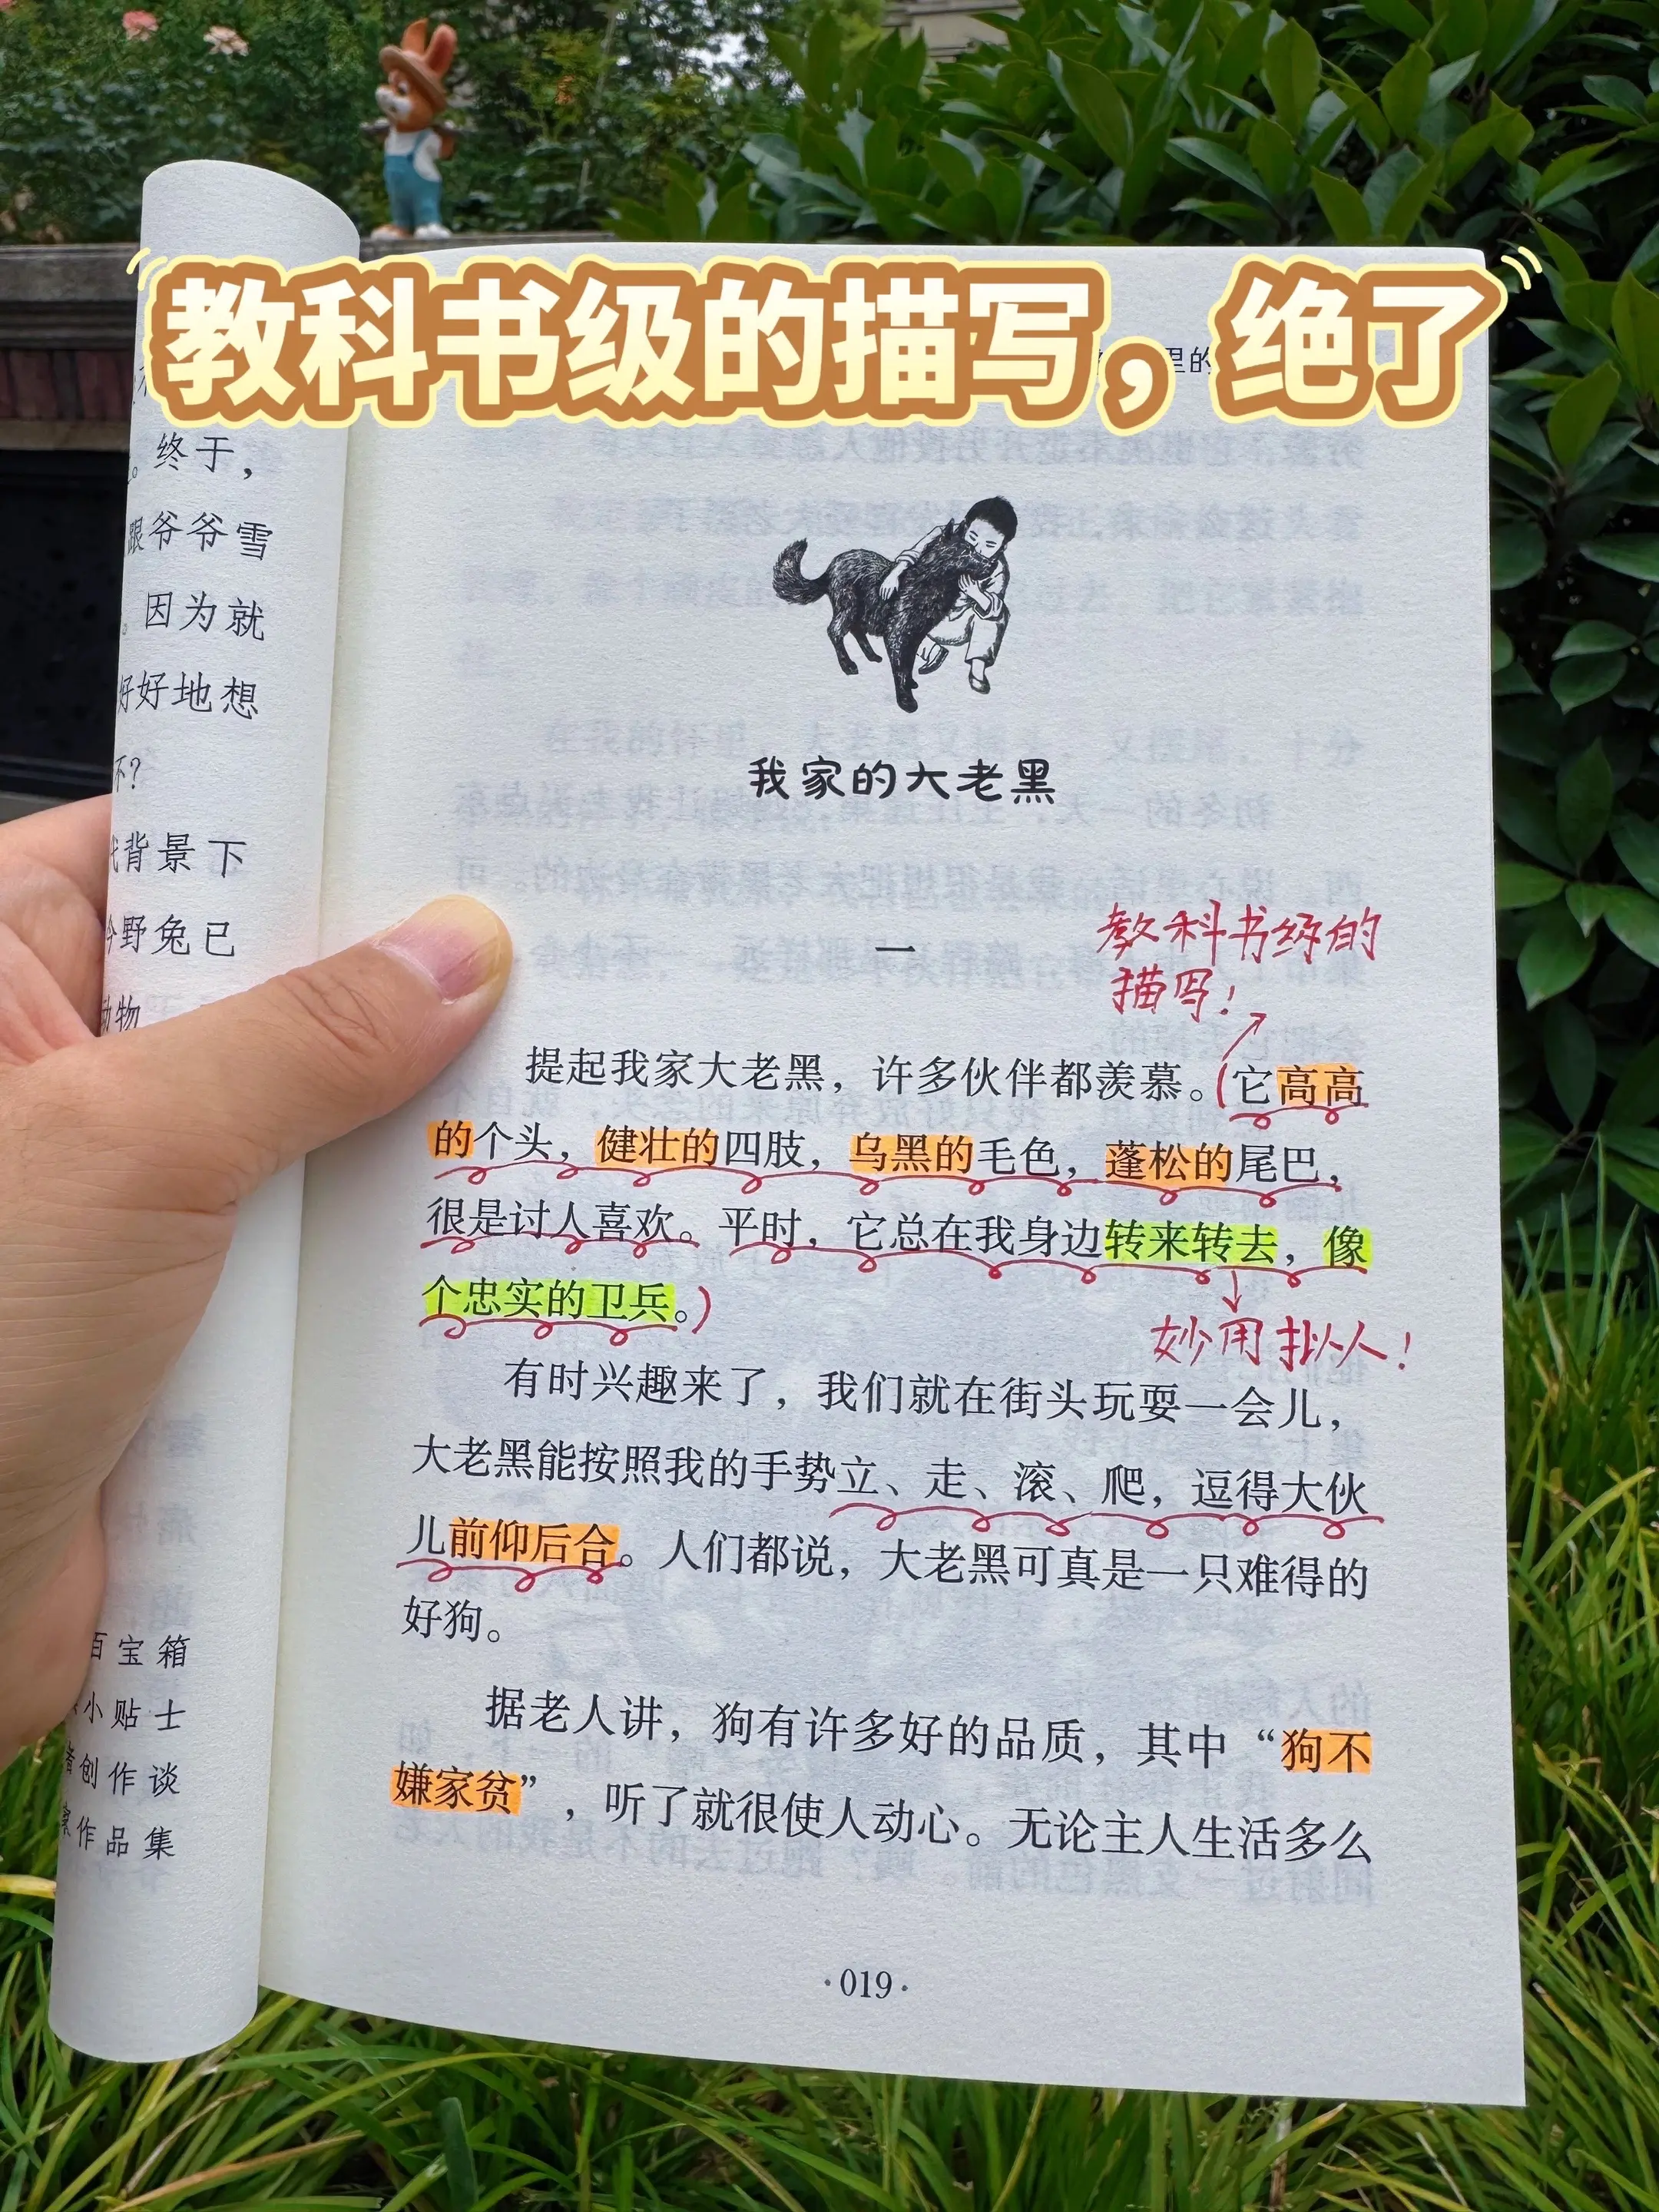 教科书级的描写，绝了
里的
终于，
跟爷爷雪
。因为就
好好地想
不？
背景下
今野兔已
动物
百宝箱
小贴士
者创作谈
家作品集
我家的大老黑
一
教科书级的
描写！
提起我家大老黑，许多伙伴都羡慕。(它高高
的个头，健壮的四肢，乌黑的毛色，蓬松的尾巴，
很是讨人喜欢。平时，它总在我身边转来转去，像
个忠实的卫兵。)
妙用拟人！
有时兴趣来了，我们就在街头玩耍一会儿，
大老黑能按照我的手势立、走、滚、爬，逗得大伙
儿前仰后合。人们都说，大老黑可真是一只难得的
好狗。
据老人讲，狗有许多好的品质，其中“狗不
嫌家贫”，听了就很使人动心。无论主人生活多么
·019·